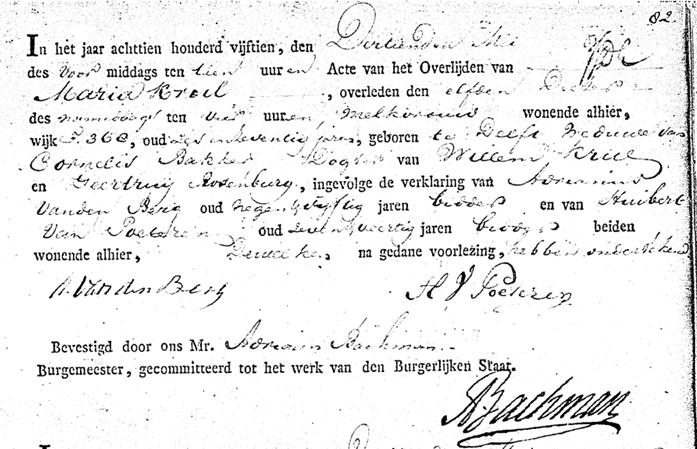 82.
In het jaar achttien honderd vijftien, den Dertienden Mei
des Voor middags ten tien uuren Acte van het Overlijden van
Maria Kroel, overleden den elfden Dezer
des namiddags ten vier uuren, Melkvrouw wonende alhier,
wijk 5.360, oud zes en seventig jaren, geboren te Delft Weduwe van
Cornelis Bakker Dogter van Willem Kriel
en Geertruy Rosenburg, ingevolge de verklaring van Adrianus
vanden Berg oud negen &vijftig jaren bieder en van Huibert
Van Poeteren oud seven &veertig jaren bieder beiden
wonende alhier, Dewelke na gedane voorlezing, hebben ondertekend
A. Van den Berg H V Poeteren
Bevestigd door ons Mr. Adriaan Bachman
Burgemeester, gecommitteerd tot het werk van den Burgerlijken Staat.
ABachman